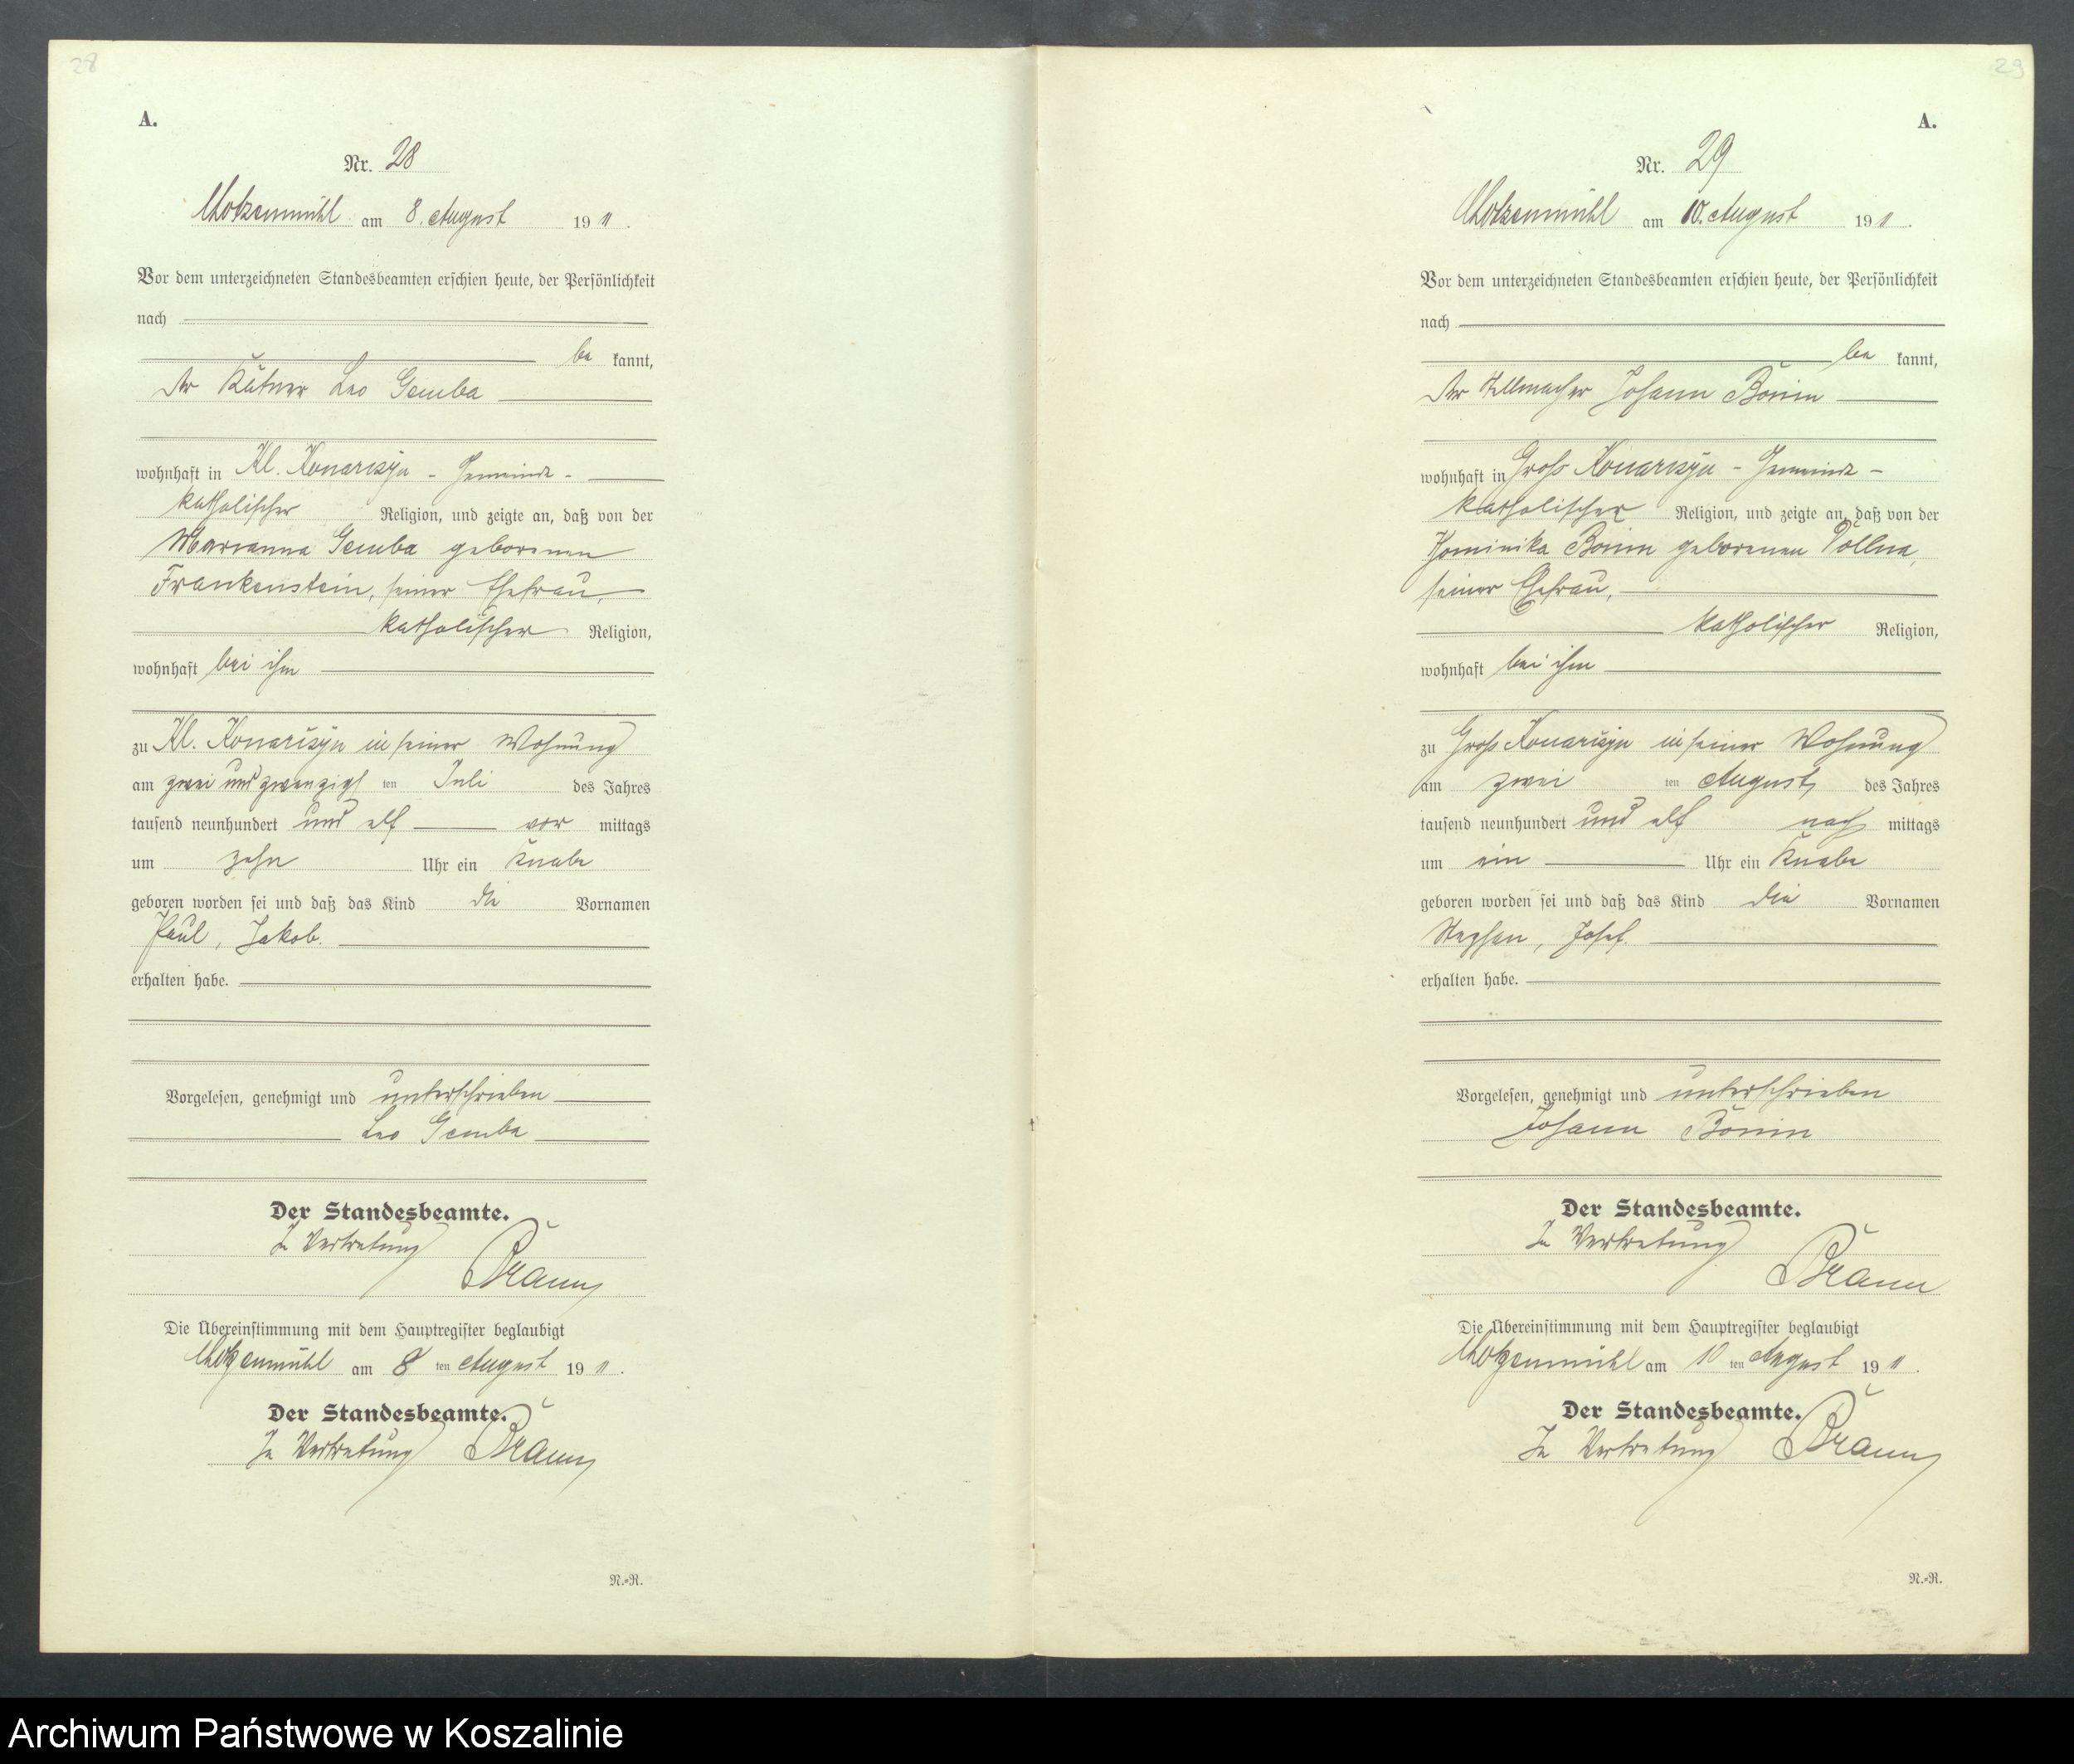 28
A.
Nr. 28
Chotzenmühl am 8. August 19 11.
Vor dem unterzeichneten Standesbeamten erschien heute, der Persönlichkeit
nach
be kannt,
der Kätner Leo Gemba
wohnhaft in Kl. Konarczyn - Gemeinde -
katholischer Religion, und zeigte an, daß von der
Marianna Gemba geborenen
Frankenstein, seiner Ehefrau,
katholischer Religion,
wohnhaft bei ihm
zu Kl. Konarczyn in seiner Wohnung
am zwei und zwanzigsten Juli des Jahres
tausend neunhundert und elf vor mittags
um zehn Uhr ein Knabe
geboren worden sei und daß das Kind die Vornamen
Paul, Jakob.
erhalten habe.
Vorgelesen, genehmigt und unterschrieben
Leo Gemba
Der Standesbeamte.
In Vertretung
Braun
Die Übereinstimmung mit dem Hauptregister beglaubigt
Chotzenmühl am 8 ten August 19 11.
Der Standesbeamte.
In Vertretung Braun
N.=R.
29
A.
Nr. 29
Chotzenmühl am 10. August 19 11.
Vor dem unterzeichneten Standesbeamten erschien heute, der Persönlichkeit
nach
be kannt,
der Stellmacher Johann Bonin
wohnhaft in Groß Konarczyn - Gemeinde -
katholischer Religion, und zeigte an, daß von der
Dominika Bonin geborenen
seiner Ehefrau,
katholischer Religion,
wohnhaft bei ihm
zu Groß Konarczyn in seiner Wohnung
am zwei ten August des Jahres
tausend neunhundert und elf nach mittags
um ein Uhr ein Knabe
geboren worden sei und daß das Kind die Vornamen
Stephan, Josef.
erhalten habe.
Vorgelesen, genehmigt und unterschrieben
Johann Bonin
Der Standesbeamte.
In Vertretung
Braun
Die Übereinstimmung mit dem Hauptregister beglaubigt
Chotzenmühl am 10 ten August 19 11.
Der Standesbeamte.
In Vertretung Braun
N.=R.
Archiwum Państwowe w Koszalinie